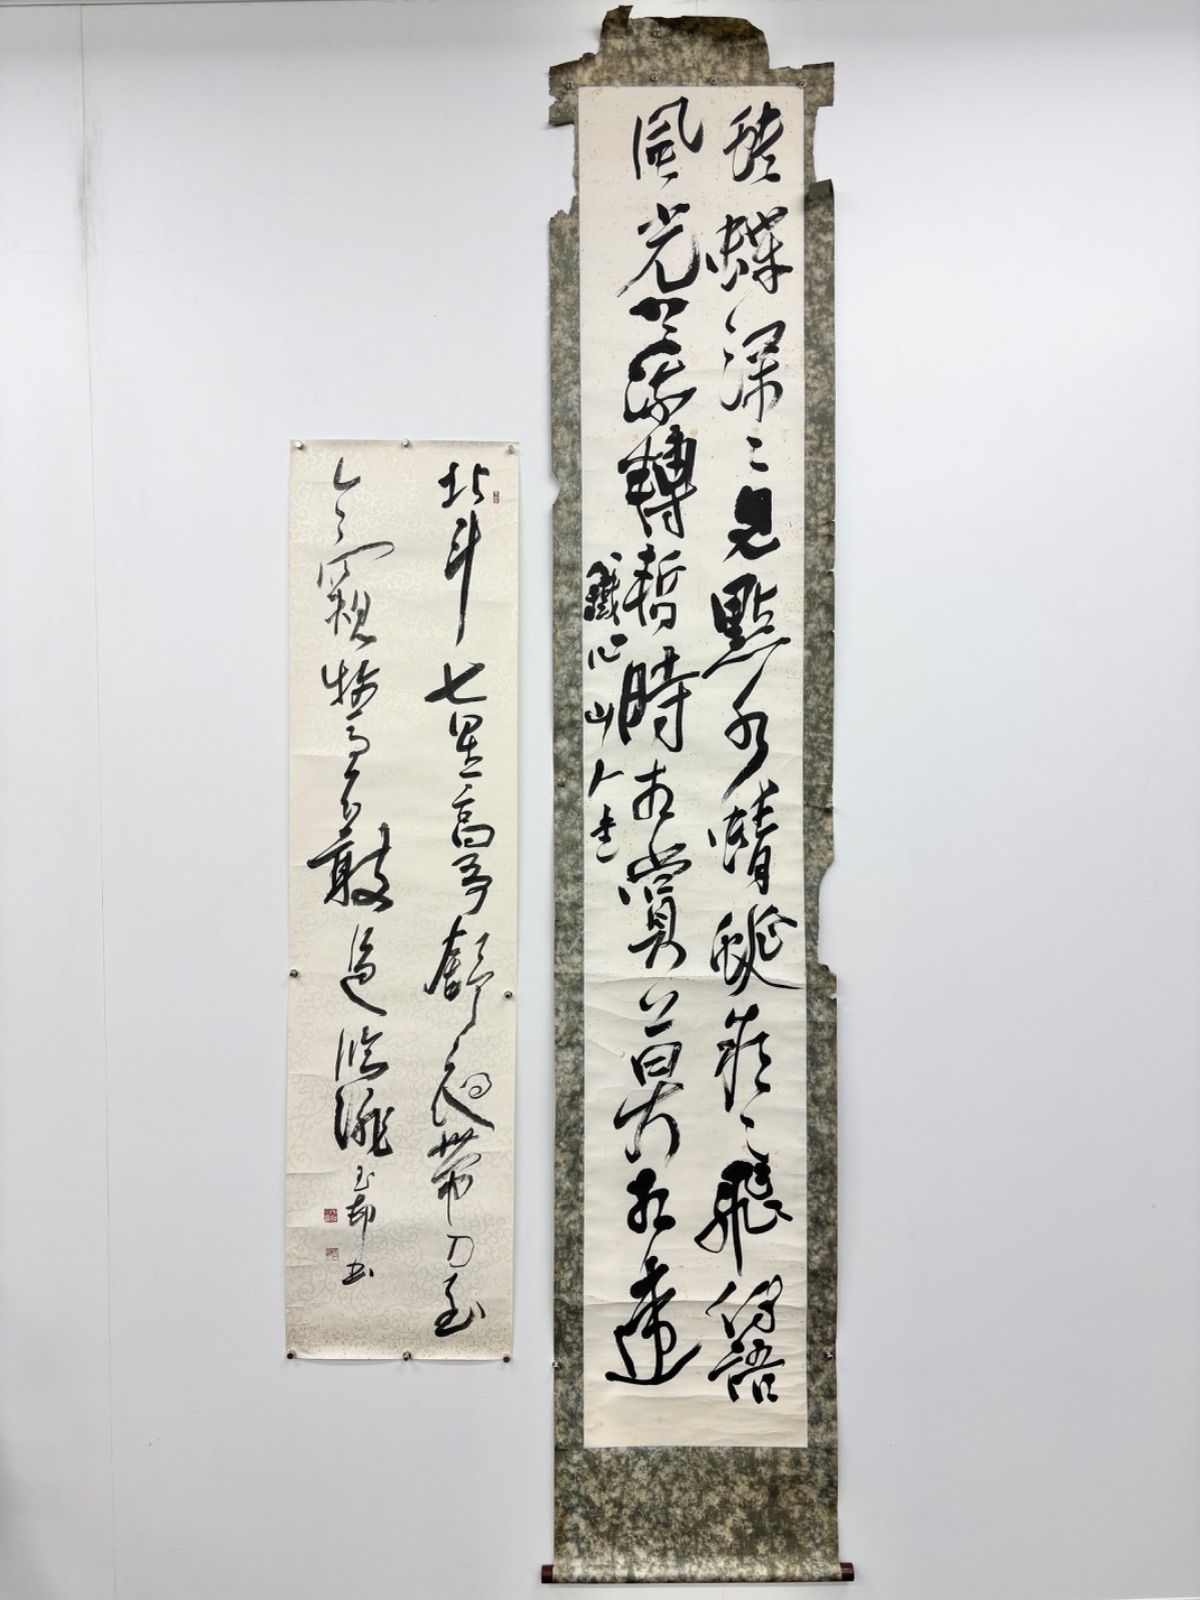 蛺蝶深〻見點水蜻蜓款〻飛傳語
風光共流轉暫時相賞莫相違
鐵心山人書
北斗七星高哥舒夜帶刀至
今窺牧馬不敢過臨洮